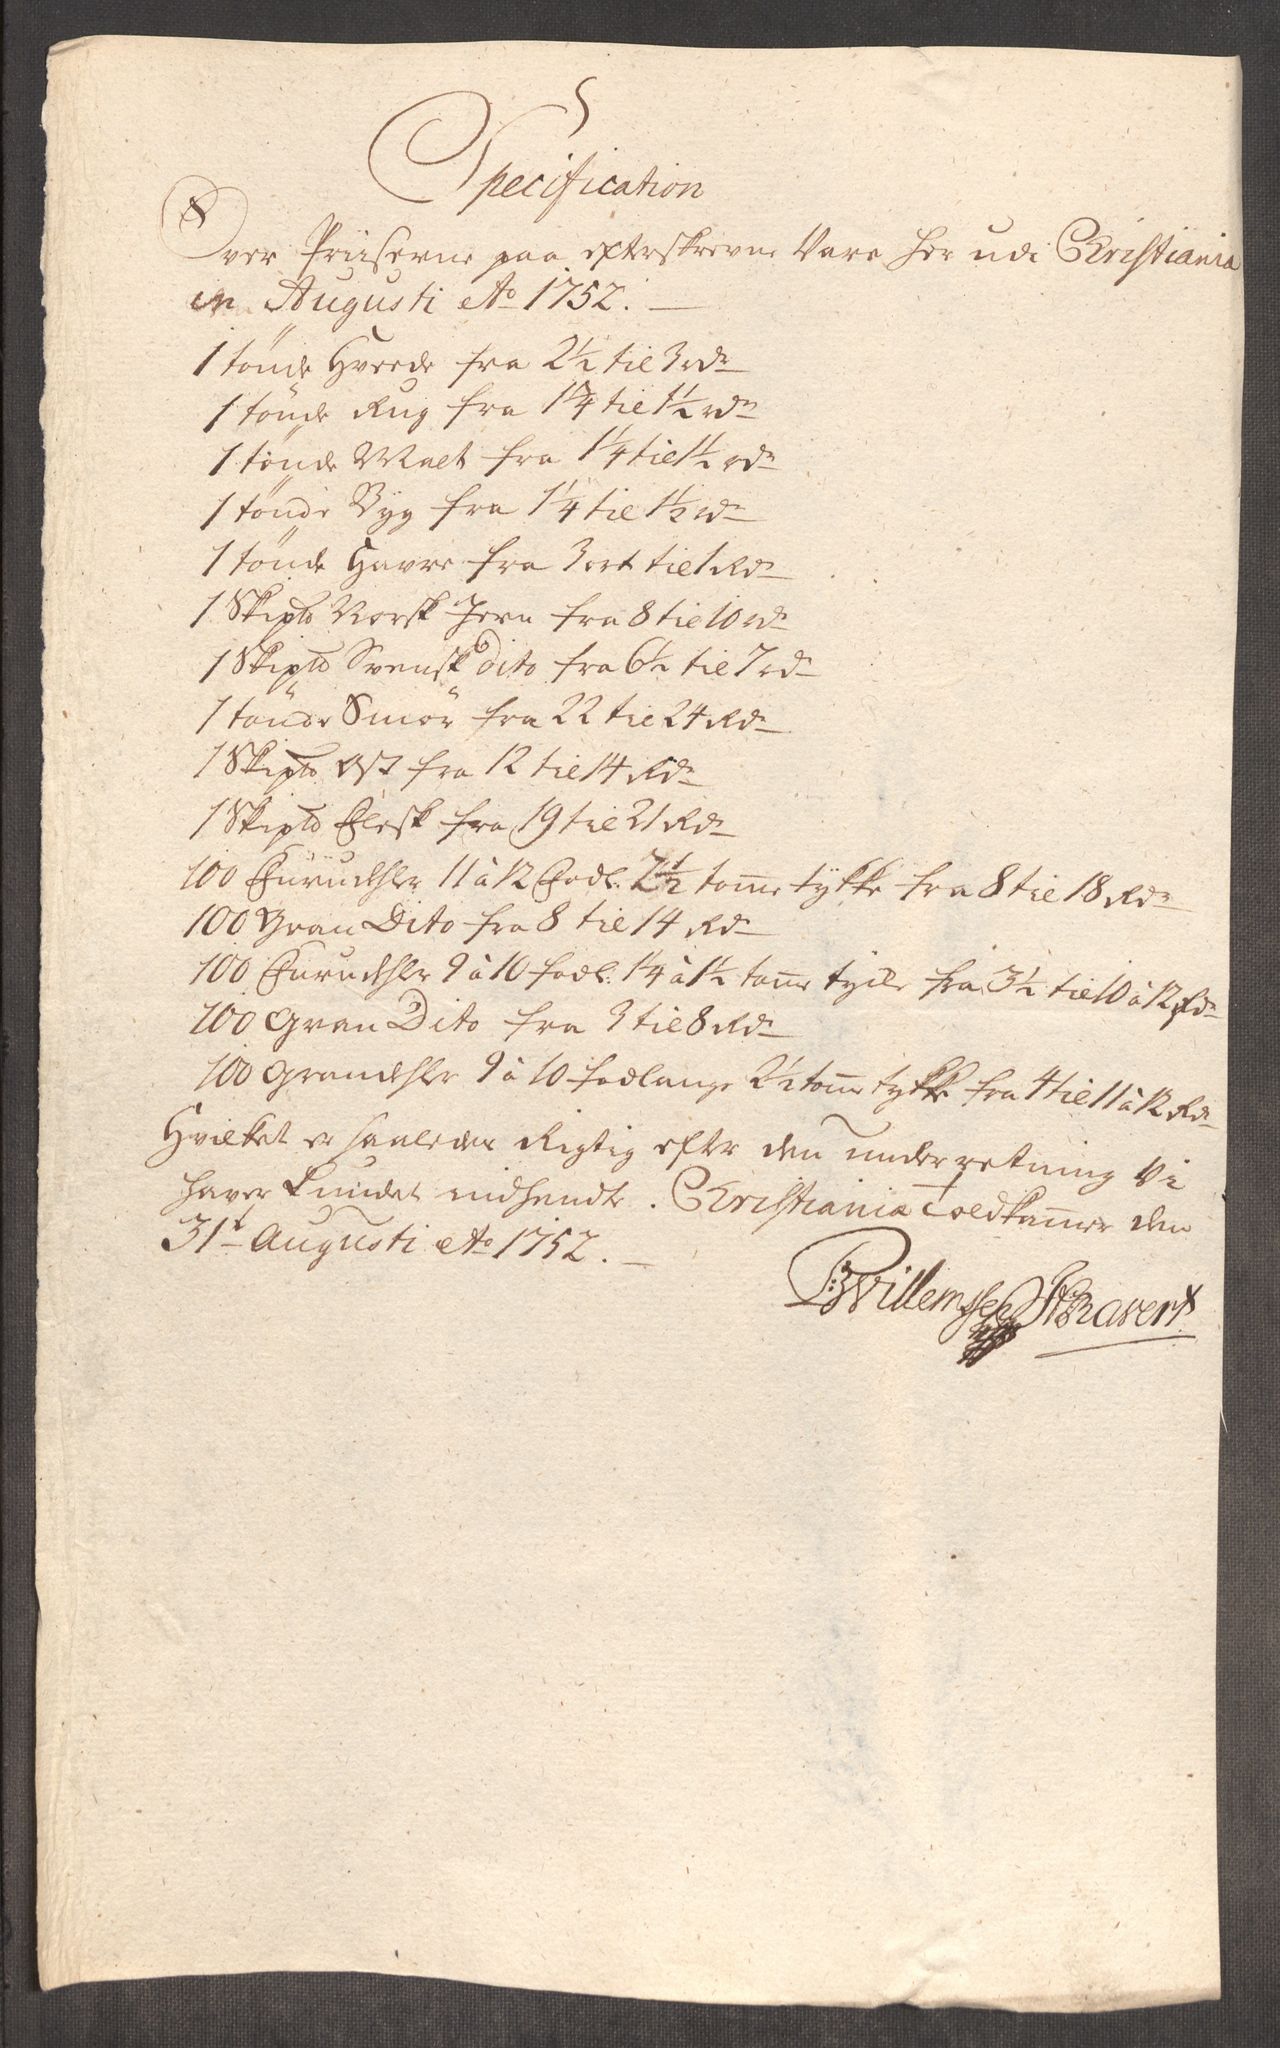 Specification
Over Priiserne paa efterskrevne Vare her udi Christiania
in Augusti Ao 1752. —
1 tönde Hvede fra 2½ til 3 rdr
1 tönde Rug fra 1¼ til 1½ rdr
1 tönde Malt fra 1¼ til 1½ rdr
1 tönde Byg fra 1¼ til 1½ rdr
1 tönde Havre fra 3 ort til 1 Rdr
1 Skipld Norsk Jern fra 8 til 10 rdr
1 Skipld Svensk Dito fra 6½ til 7 rdr
1 tönde Smör fra 22 til 24 Rdr
1 Skipld Ost fra 12 til 14 Rdr
1 Skipld Flesk fra 19 til 21 Rdr
100 Furudehler 11 à 12 Fodl. 2½ tomme tykke fra 8 til 18 Rdr
100 Gran Dito fra 8 til 14 Rdr
100 Furudehlr 9 à 10 fodl. 1¼ à 1½ tomme fra 3½ til 10 à 12 Rdr
100 Gran Dito fra 3 til 8 Rdr
100 Grandehlr 9 à 10 fodlange 2½ tomme tykke fra 4 til 11 à 12 Rdr
Hvilket er saaledes Rigtig efter den underretning Vi
haver kundet indhendte. Christiania Toldkammer den
31t Augusti Ao 1752. —
Willemsen